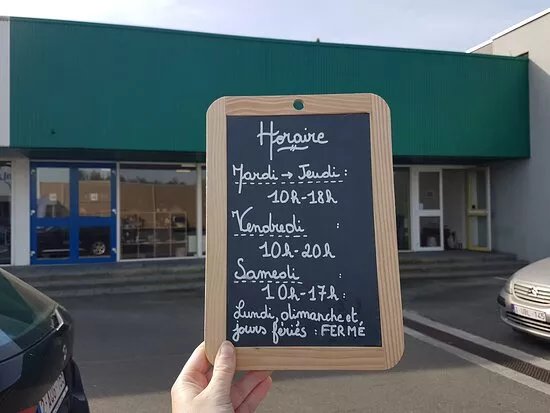 Horaire
Mardi → Jeudi :
10h-18h
Vendredi :
10h-20h
Samedi :
10h-17h :
Lundi, dimanche et
jours fériés : FERMÉ